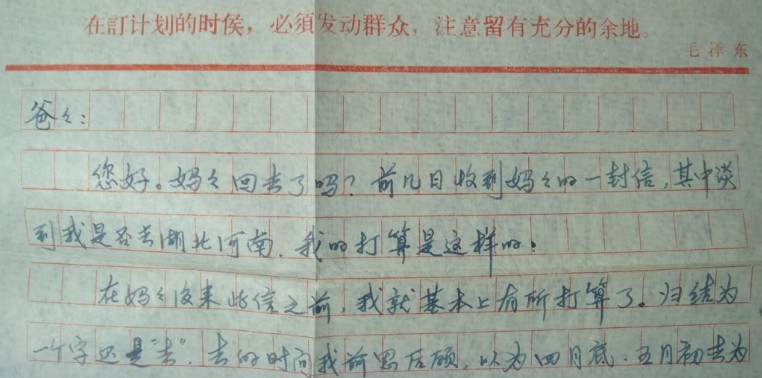 在訂计划的时侯，必須发动群众，注意留有充分的余地。
毛泽东
爸々：
您好。妈々回去了吗？前几日收到妈々的一封信，其中谈
到我是否去湖北河南，我的打算是这样的：
在妈々没来此信之前，我就基本上有所打算了。归结为
一个字还是“去”。去的时间我前思后顾，以为四月底、五月初去为